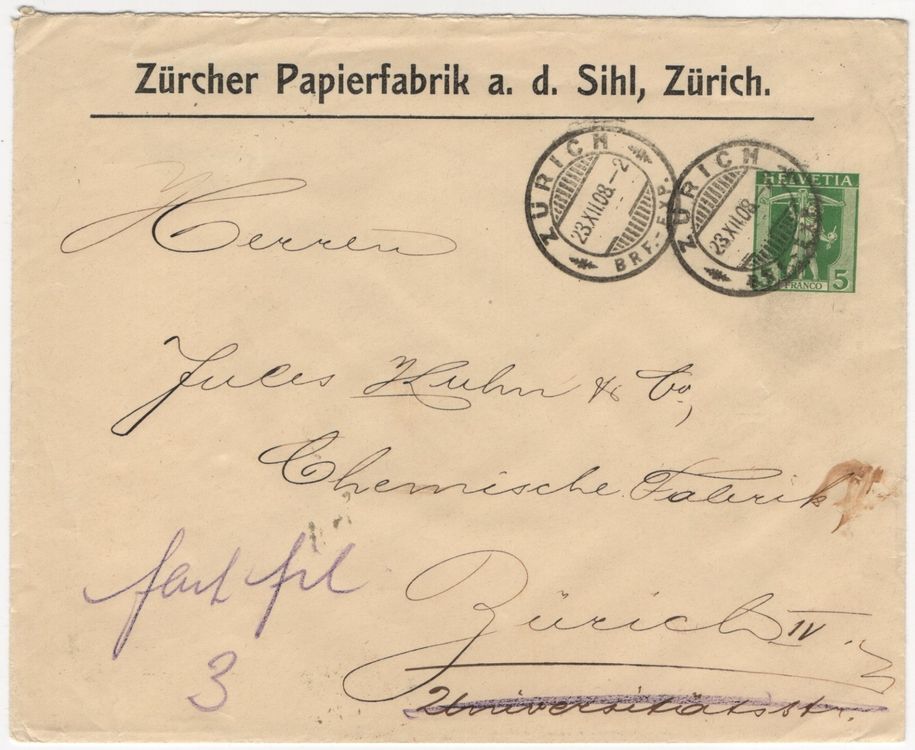 Zürcher Papierfabrik a. d. Sihl, Zürich.
ZÜRICH
23.XII.08.–2
BRF.-EXP.
ZÜRICH
23.XII.08.
HELVETIA
FRANCO 5
Herren
Jules Kuhn & Co,
Chemische Fabrik,
Zürich IV.
Universitätsstr.
3